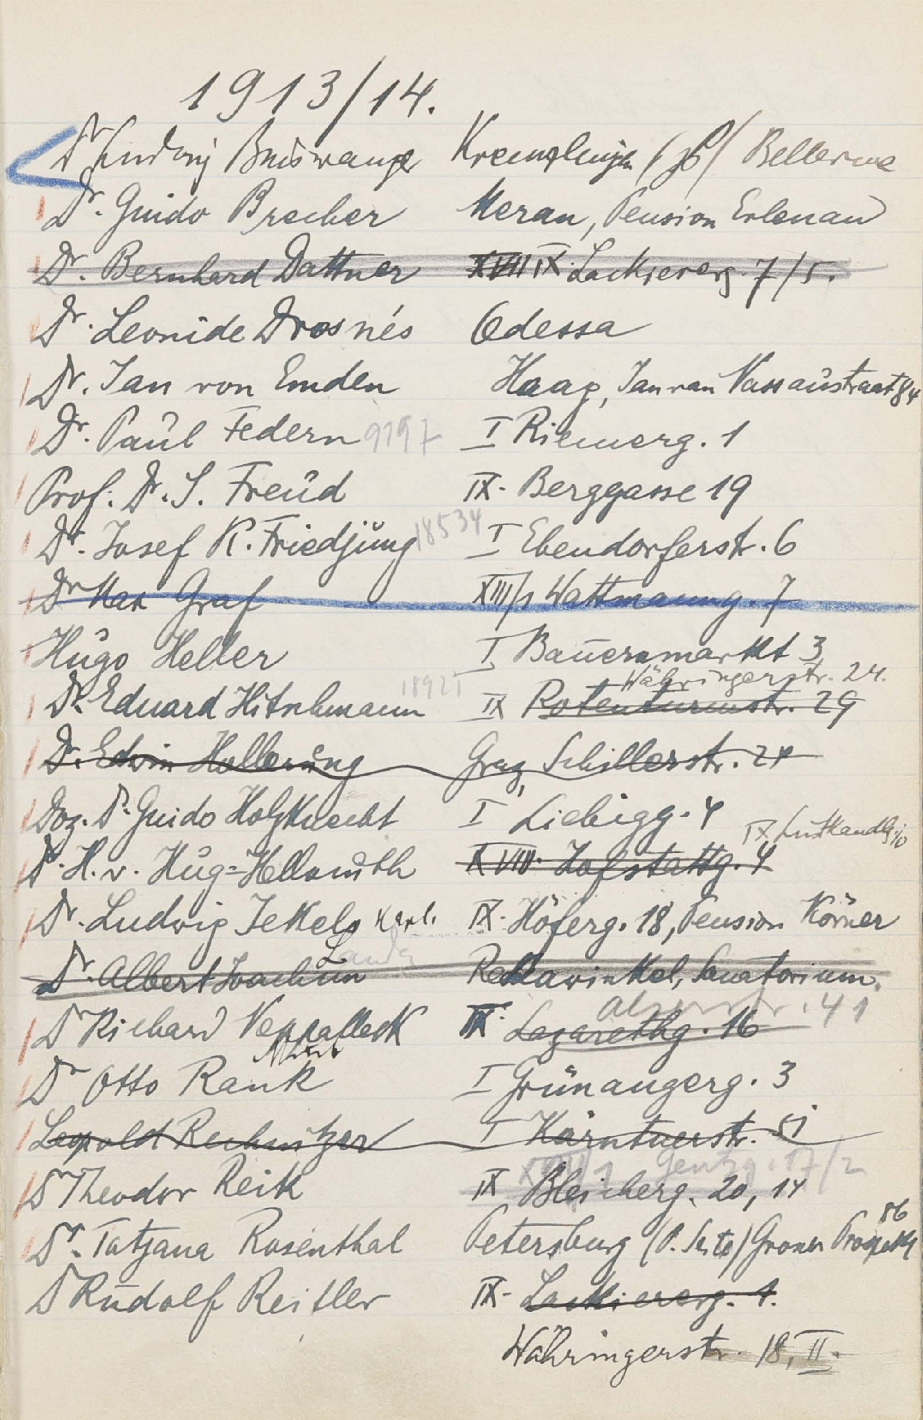 1913/14.
Dr Ludwig Binswanger Kreuzlingen Bellevue
Dr. Guido Brecher Meran, Pension Erlenau
Dr. Bernhard Dattner XVIII IX. Lackiererg. 7/5.
Dr. Leonide Drosnés Odessa
Dr. Jan van Emden Haag, Jan van Nassaustraat 84
Dr. Paul Federn 9197 I Riemerg. 1
Prof. Dr. S. Freud IX. Berggasse 19
Dr. Josef K. Friedjung 18534 I Ebendorferstr. 6
Dr Max Graf XIII/1 Wattmanng. 7
Hugo Heller I Bauernmarkt 3
Währingerstr. 24.
Dr. Eduard Hitschmann 18921 IX Rotenturmstr. 29
Dr. Edwin Hollerung Graz, Schillerstr. 24
Doz. Dr. Guido Holzknecht I Liebigg. 4
IX Lustkandlg. 10
Dr. H. v. Hug-Hellmuth XVIII. Lofstattg. 4
Dr. Ludwig Jekels Karl. IX. Höferg. 18, Pension Körner
Dr. Albert Joachim Rekawinkel, Sanatorium.
Alserstr. 41
Dr Richard Neppalleck IX. Lazarethg. 16
Dr Otto Rank I Grünangerg. 3
Leopold Rechnitzer I Kärntnerstr. 51
XVIII/1 Gentzg. 17/2
Dr Theodor Reik IX Bleicherg. 20, 14
Dr. Tatjana Rosenthal Petersburg (P. Seite) Grosser Prospekt 86
Dr Rudolf Reitler IX. Lackiererg. 1.
Währingerstr. 18, II.